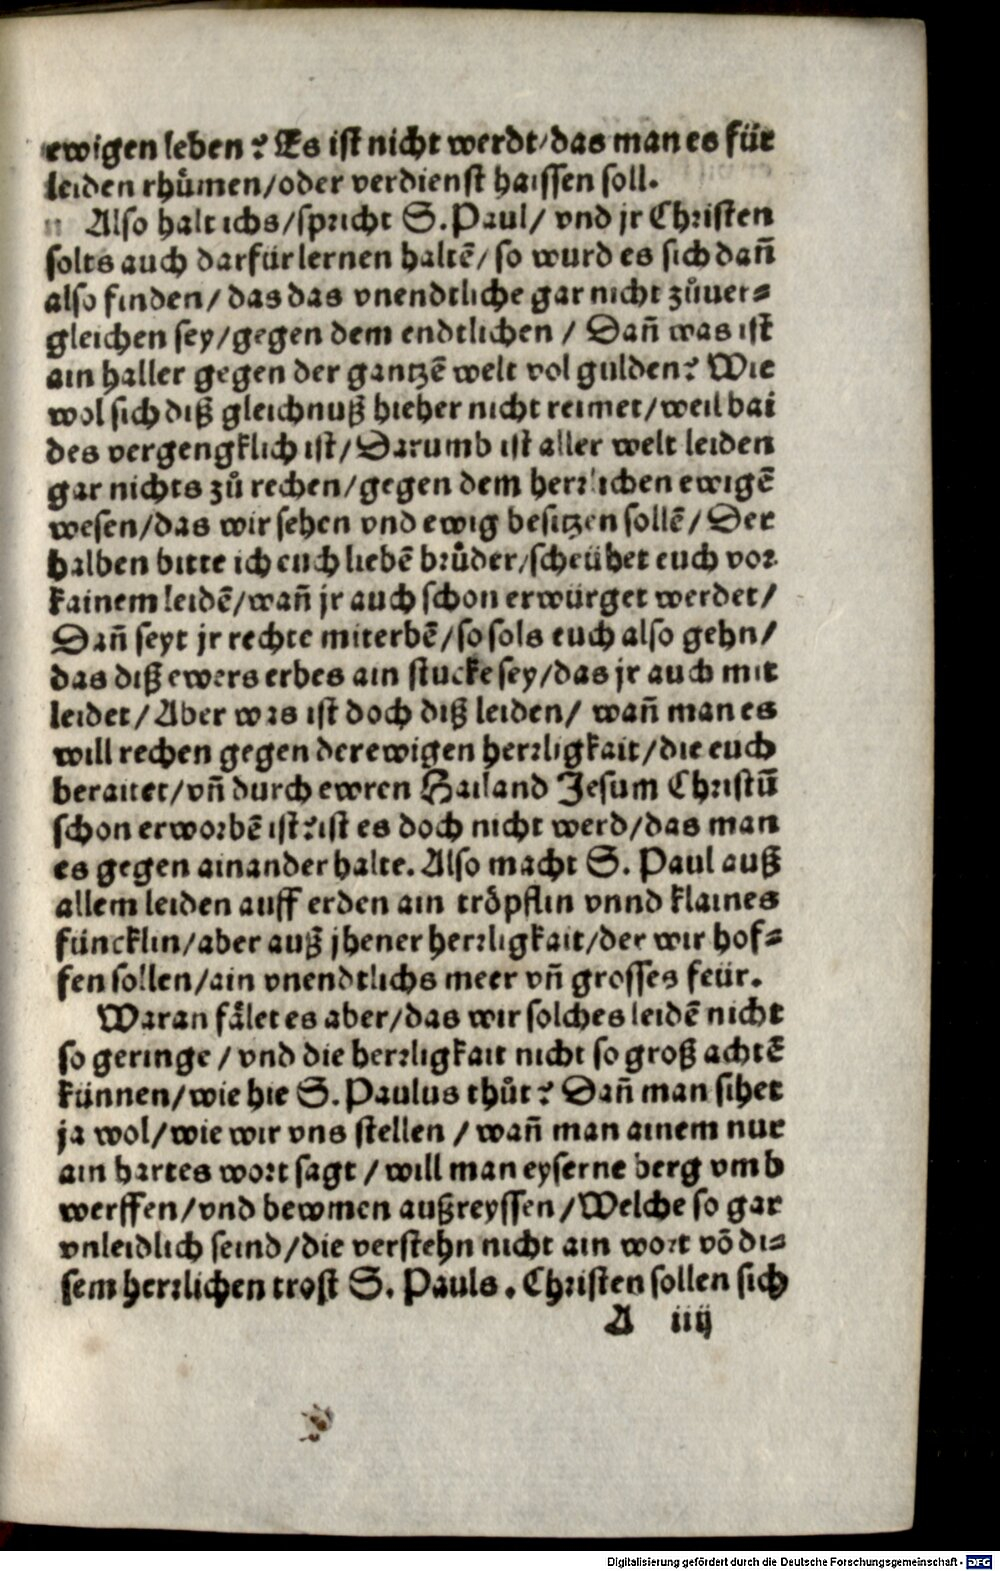 ewigen leben? Es ist nicht werdt/das man es für
leiden rhůmen/oder verdienst haissen soll.
Also halt ichs/spricht S. Paul/ vnd jr Christen
solts auch darfür lernen haltē/ so wurd es sich dañ
also finden/ das das vnendtliche gar nicht zůuer⸗
gleichen sey/gegen dem endtlichen / Dañ was ist
ain haller gegen der gantzē welt vol gulden? Wie
wol sich diß gleichnuß hieher nicht reimet/weil bai
des vergengklich ist/Darumb ist aller welt leiden
gar nichts zů rechen/gegen dem herrlichen ewigē
wesen/das wir sehen vnd ewig besitzen sollē/Der
halben bitte ich euch liebē brůder/scheühet euch vor
kainem leidē/wañ jr auch schon erwürget werdet/
Dañ seyt jr rechte miterbē/so sols euch also gehn/
das diß ewers erbes ain stucke sey/das jr auch mit
leidet/Aber was ist doch diß leiden/ wañ man es
will rechen gegen der ewigen herrligkait/die euch
beraitet/vñ durch ewren Hailand Jesum Christū
schon erworbē ist? ist es doch nicht werd/das man
es gegen ainander halte. Also macht S. Paul auß
allem leiden auff erden ain trôpflin vnnd klaines
füncklin/aber auß jhener herrligkait/der wir hof⸗
fen sollen/ain vnendtlichs meer vñ grosses feür.
Waran fålet es aber/das wir solches leidē nicht
so geringe/vnd die herrligkait nicht so groß achtē
künnen/wie hie S. Paulus thůt? Dañ man sihet
ja wol/wie wir vns stellen /wañ man ainem nur
ain hartes wort sagt/will man eyserne berg vmb
werffen/vnd bewmen außreyssen/Welche so gar
vnleidlich seind/die verstehn nicht ain wort võ di⸗
sem herrlichen trost S. Pauls. Christen sollen sich
A iiij
Digitalisierung gefördert durch die Deutsche Forschungsgemeinschaft - DFG